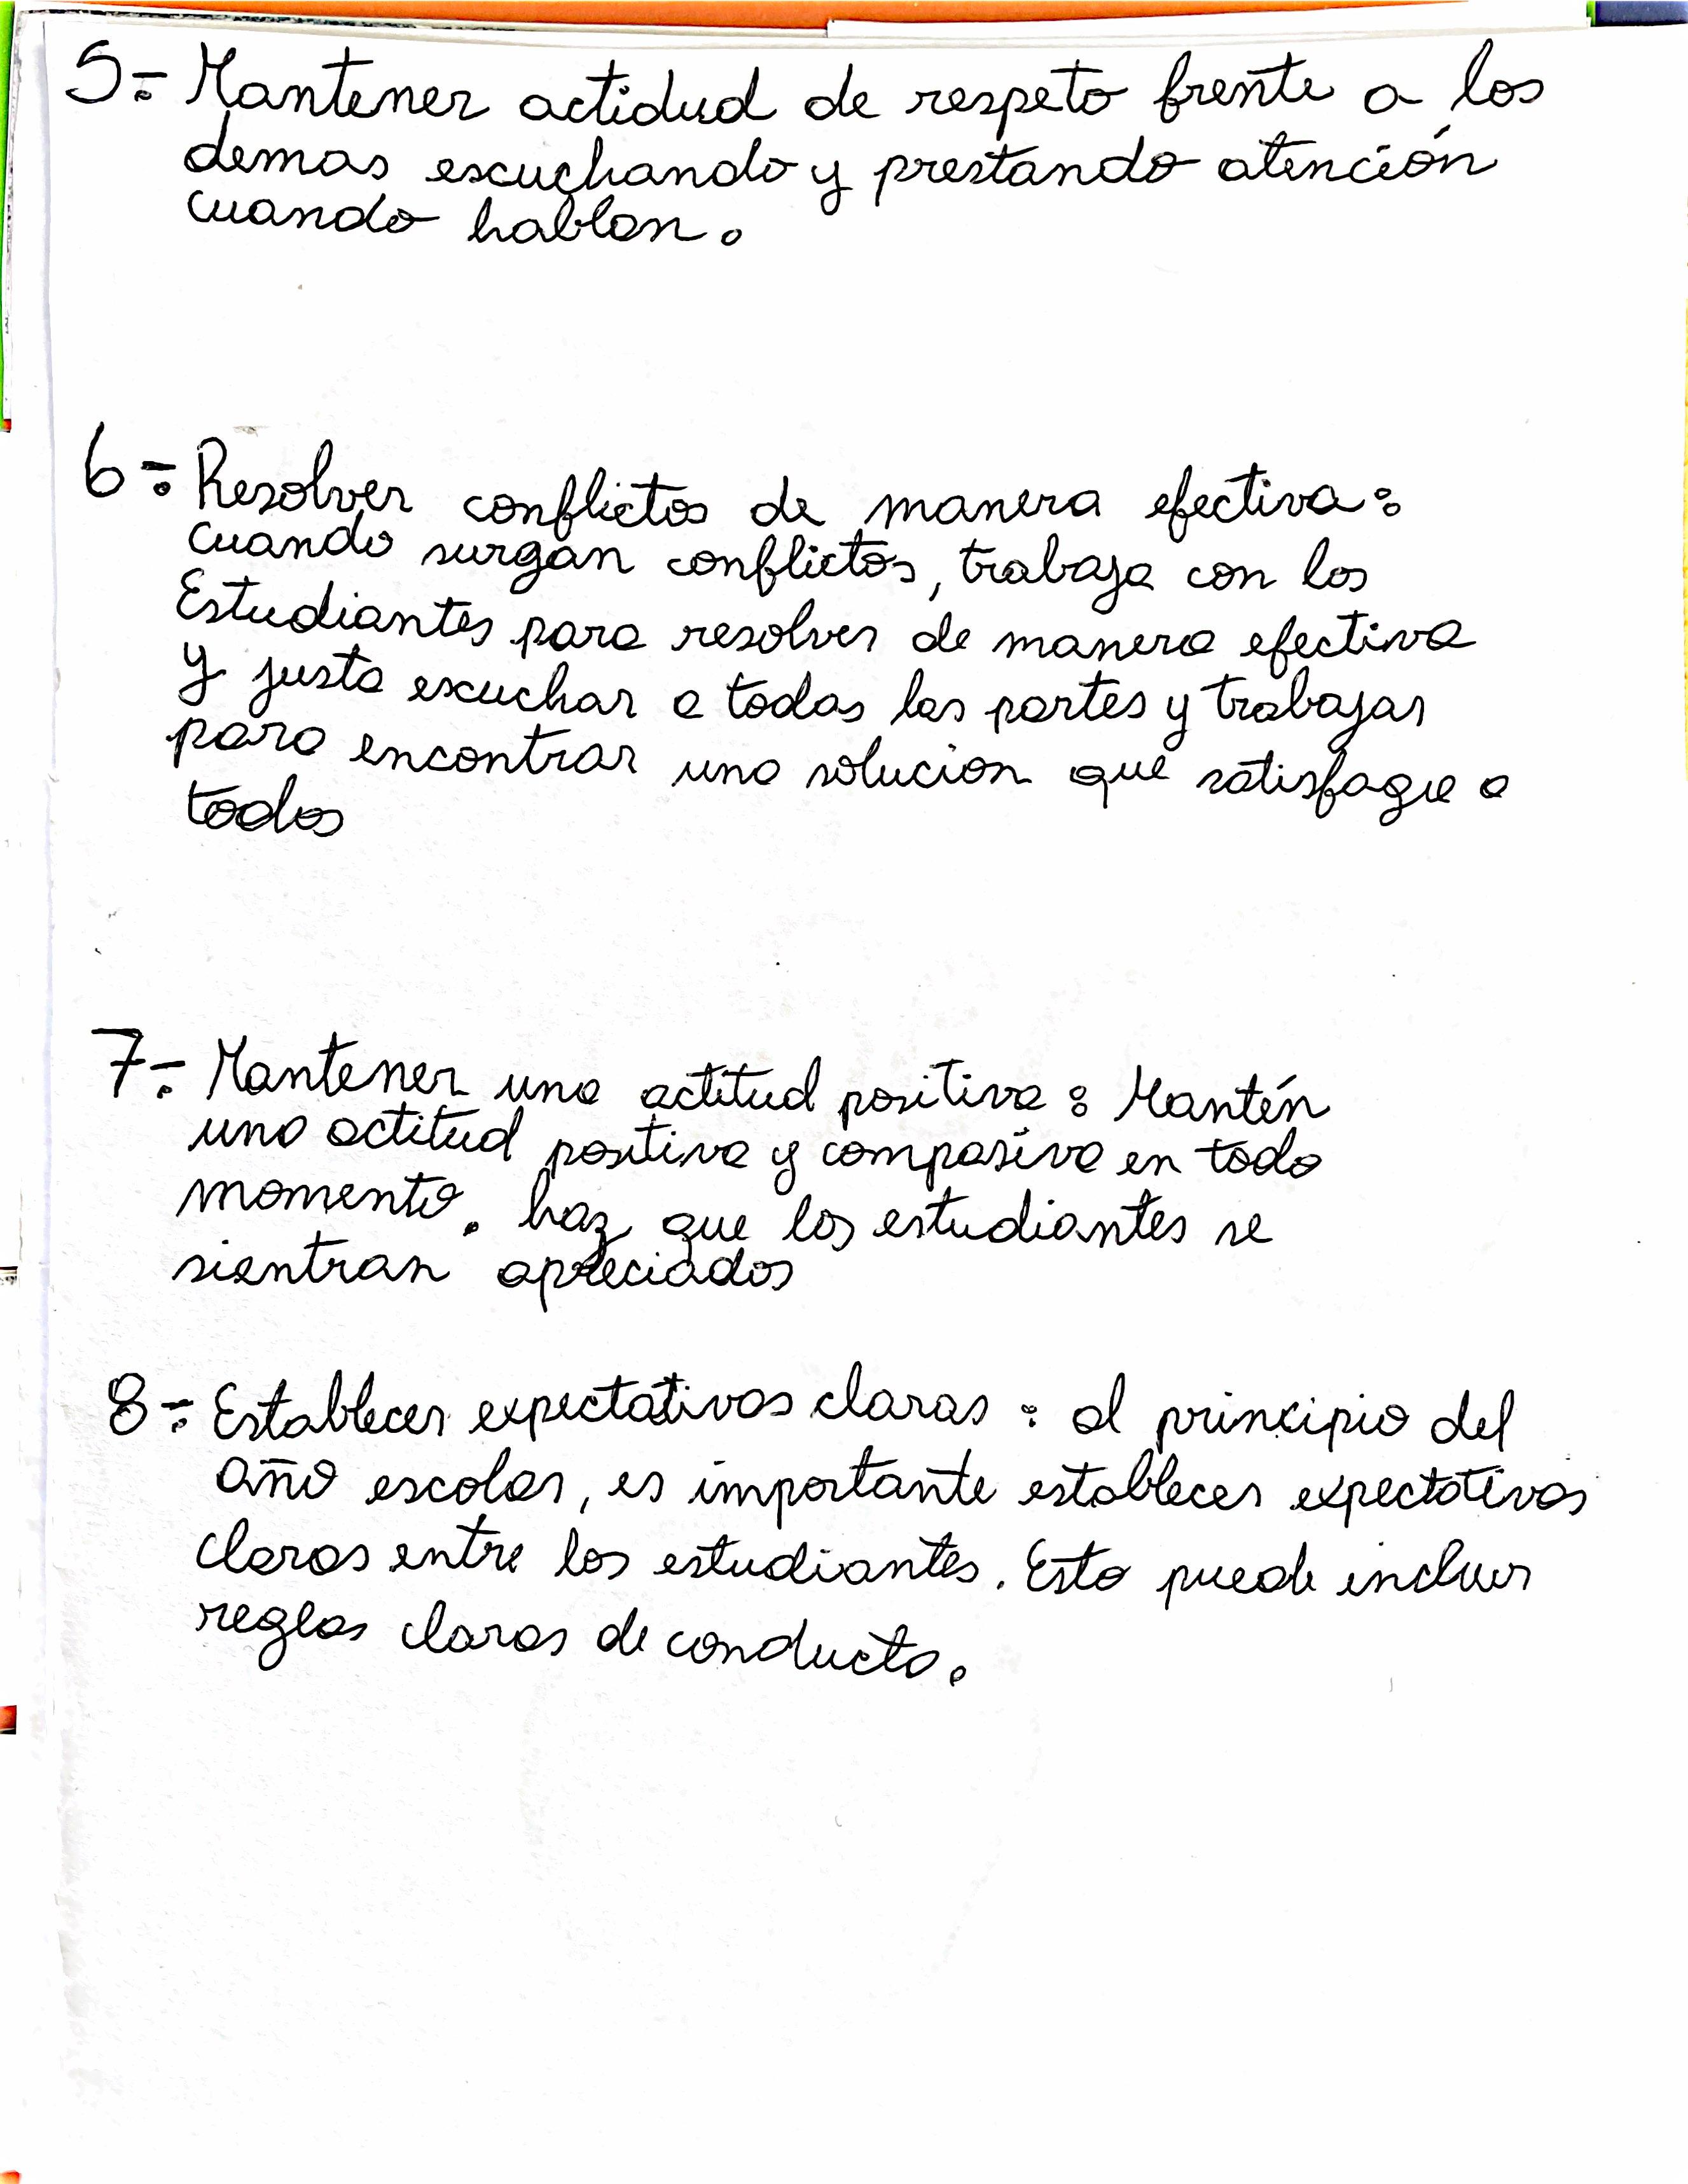 5-. Mantener actidud de respeto frente a los
demas escuchando y prestando atención
cuando hablan.
6-. Resolver conflictos de manera efectiva:
cuando surgan conflictos, trabaja con los
Estudiantes para resolver de manera efectiva
y justa escuchar a todas las partes y trabajar
para encontrar una solucion que satisfague a
todos
7-. Mantener una actitud positiva: Mantén
una actitud positiva y compasiva en todo
momento. haz que los estudiantes se
sientran apreciados
8-. Establecer expectativas claras: al principio del
año escolar, es importante establecer expectativas
claras entre los estudiantes. Esto puede incluir
reglas claras de conducta.